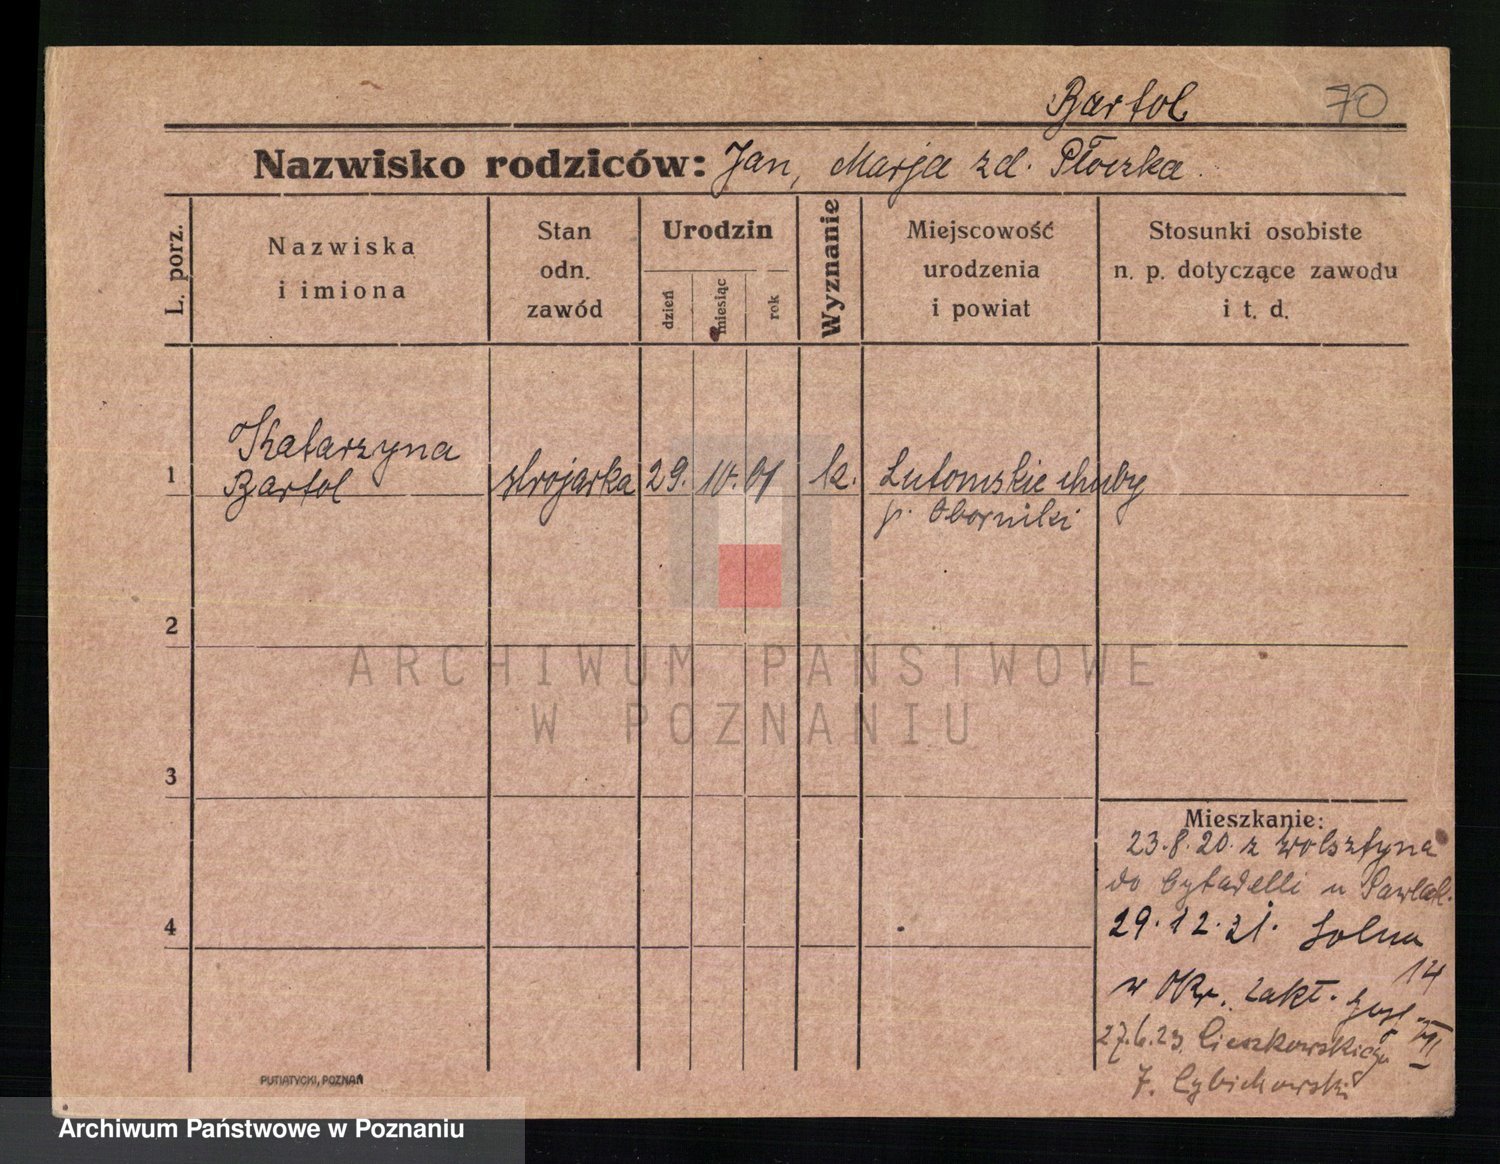 Bartol 70
Nazwisko rodziców: Jan, Marja zd. Płoczka
L. porz.
Nazwiska
i imiona
Stan
odn.
zawód
Urodzin
dzień
miesiąc
rok
Wyznanie
Miejscowość
urodzenia
i powiat
Stosunki osobiste
n. p. dotyczące zawodu
i t. d.
Katarzyna
1 Bartol strojarka 29. 10. 01 k. Lutomskie chuby
p. Oborniki
2
3
4
Mieszkanie:
23.8.20. z Wolsztyna
do Cytadelli u Pawlak.
29.12.21. Solna
14
w Okr. zakł. VII
27.6.23. Cieszkowskiego
7. Cybichowski
PUTIATYCKI, POZNAŃ
ARCHIWUM PAŃSTWOWE
W POZNANIU
Archiwum Państwowe w Poznaniu